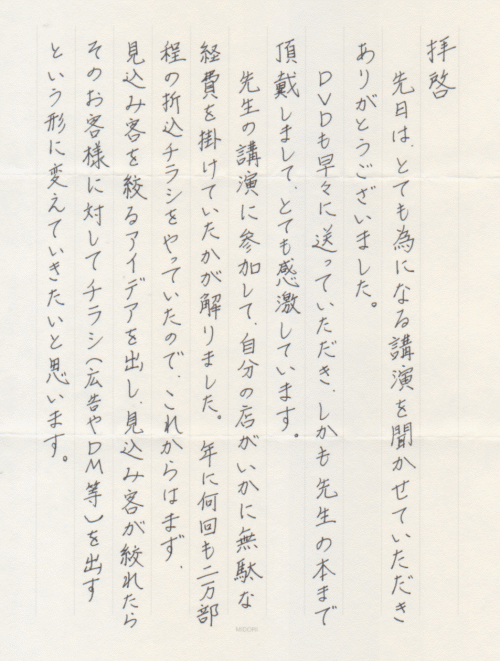 拝啓
先日は、とても為になる講演を聞かせていただき
ありがとうございました。
DVDも早々に送っていただき、しかも先生の本まで
頂戴しまして、とても感激しています。
先生の講演に参加して、自分の店がいかに無駄な
経費を掛けていたかが解りました。年に何回も二万部
程の折込チラシをやっていたので、これからはまず、
見込み客を絞るアイデアを出し、見込み客が絞れたら
そのお客様に対してチラシ(広告やDM等)を出す
という形に変えていきたいと思います。
MIDORI